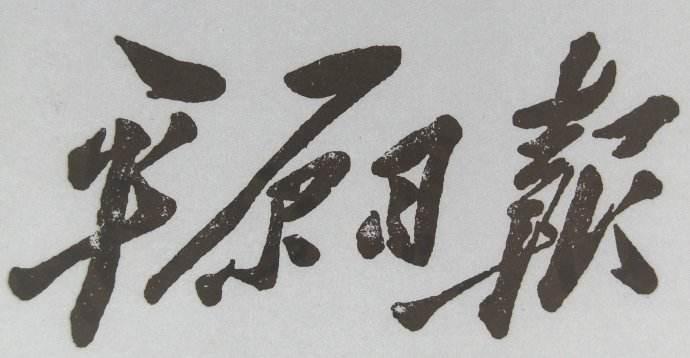 平原日報